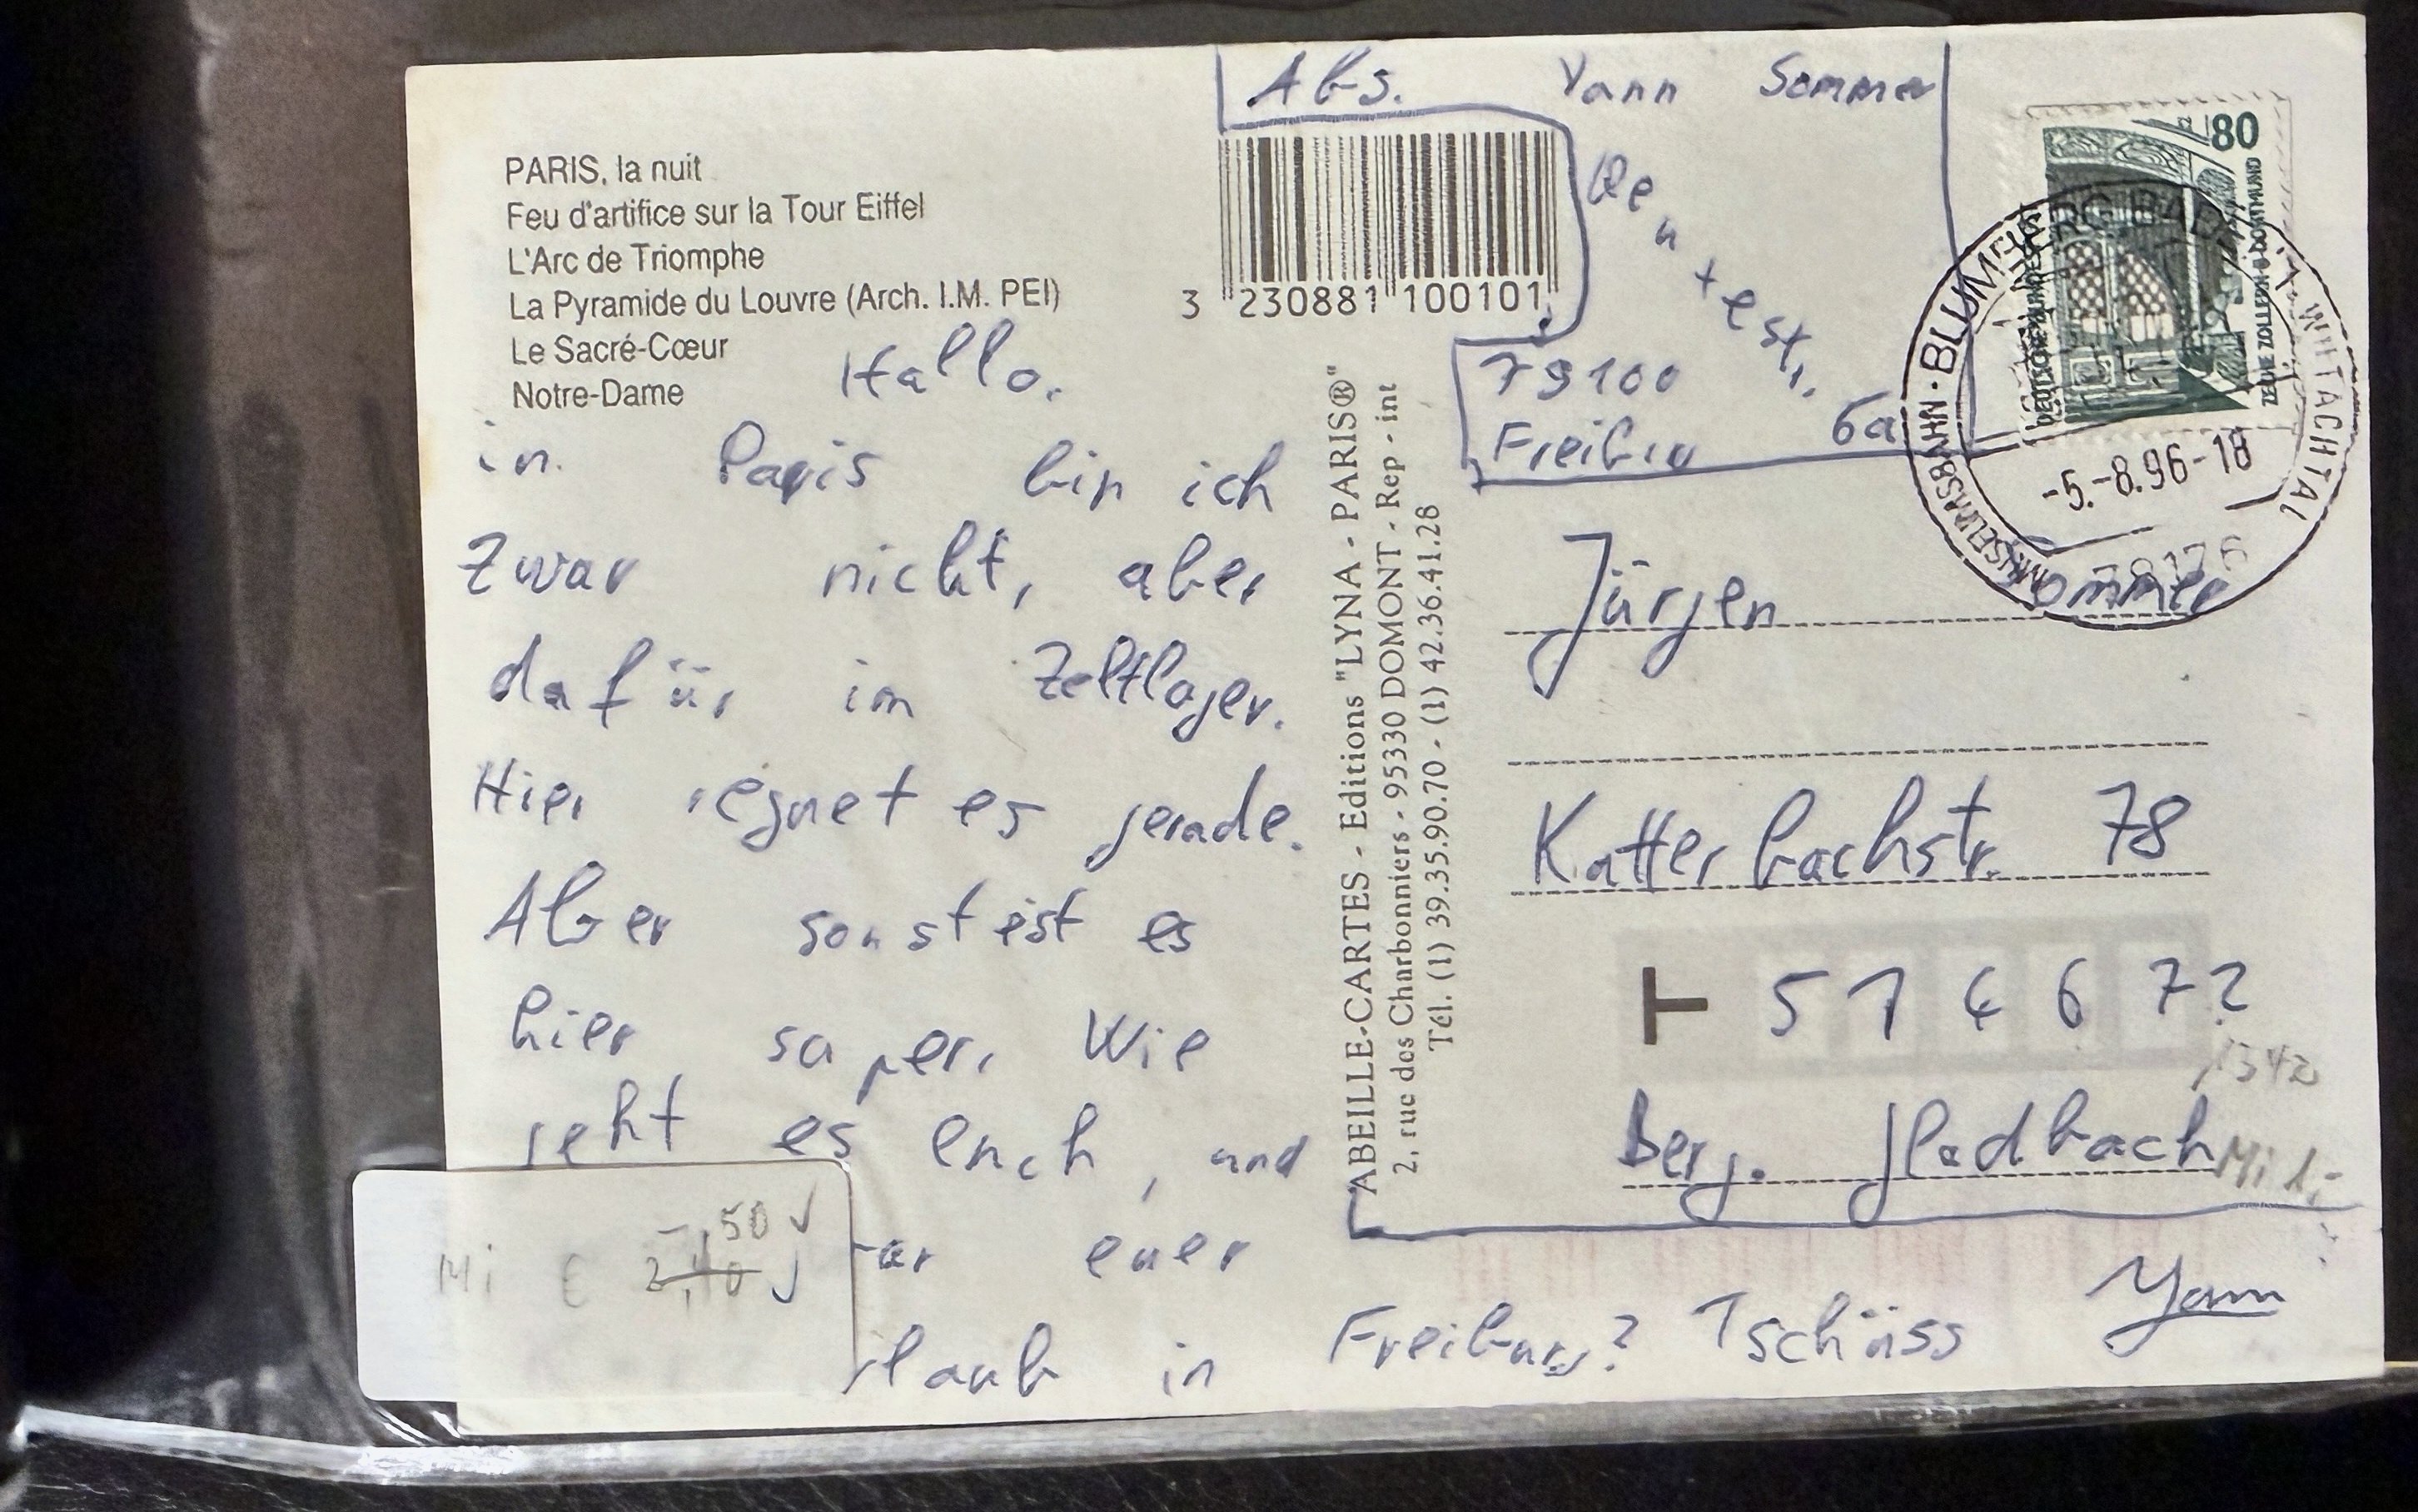 PARIS, la nuit
Feu d'artifice sur la Tour Eiffel
L'Arc de Triomphe
La Pyramide du Louvre (Arch. I.M. PEI)
Le Sacré-Cœur
Notre-Dame
Hallo.
in Paris bin ich
zwar nicht, aber
dafür im Zeltlager.
Hier regnet es gerade.
Aber sonst ist es
hier super. Wie
geht es euch, und
ar euer
rlaub in Freiburg? Tschüss Yann
Mi € -,50
2,40
3 230881 100101
ABEILLE-CARTES - Editions "LYNA - PARIS®"
2, rue des Charbonniers - 95330 DOMONT - Rep - int
Tél. (1) 39.35.90.70 - (1) 42.36.41.28
Abs. Yann Sommer
79100
6a
80
DEUTSCHE BUNDESPOST
ZECHE ZOLLERN II DORTMUND
MUSEUMSBAHN · BLUMBERG BADEN WUTACHTAL
-5.-8.96-18
78176
Jürgen Sommer
Katterbachstr. 78
T 51467?
Berg. Gladbach
Mi 1,-